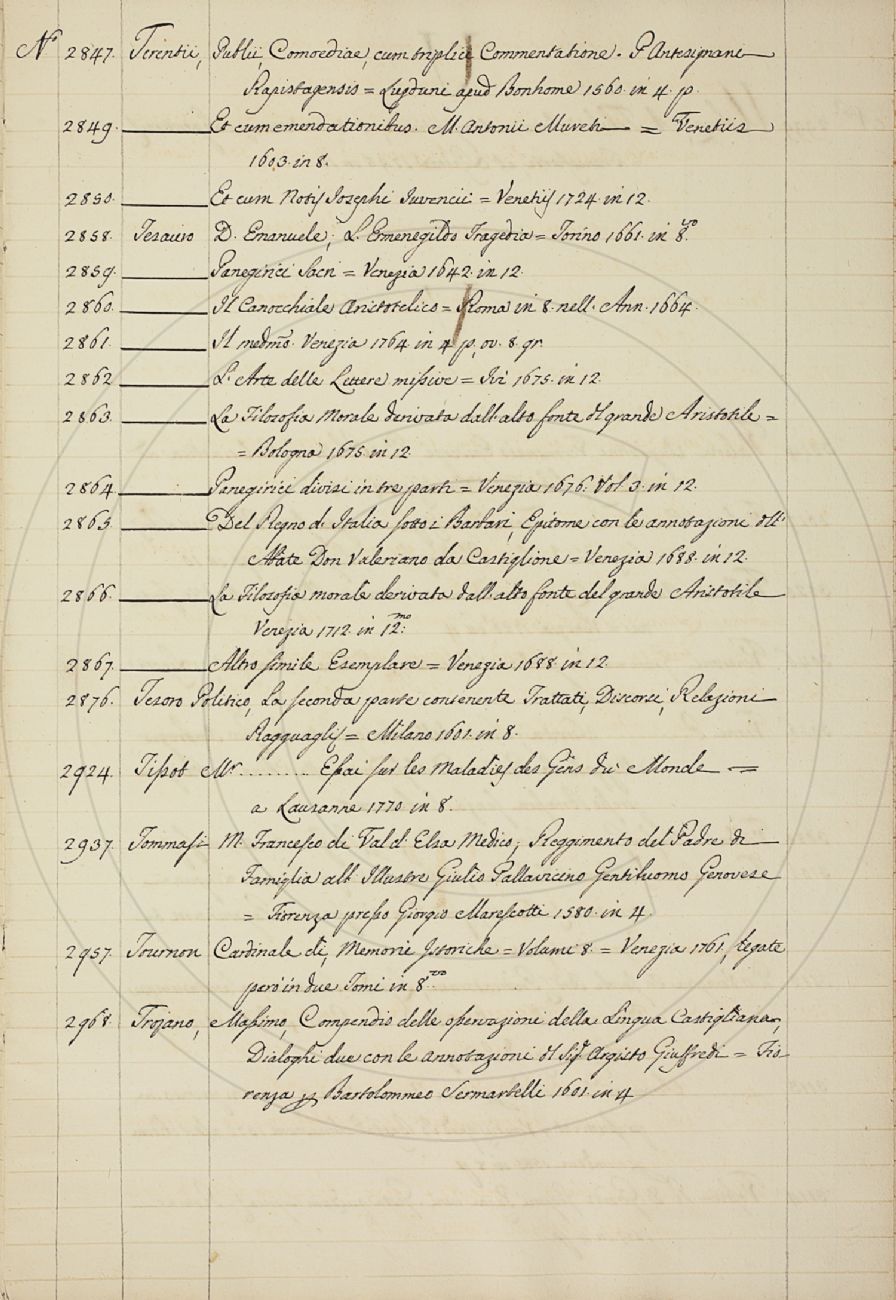 N.º 2847. Terentii, Publii, Comoediae, cum triplici Commentatione. P. Antesignani
Rapistagensis = Lugduni apud Bonhome 1560. in 4. p.
2849. Et cum emendationibus. M. Antonii Mureti = Venetiis
1603. in 8.
2850. Et cum Notis Josephi Juvencii = Venetiis 1724. in 12.
2858. Tesauro D. Emanuele, L. Ermenegildo Tragedia = Torino 1661. in 8.vo
2859. Panegirici Sacri = Venezia 1642. in 12.
2860. Il Canocchiale Aristotelico = Roma in 8. nell. Ann. 1664.
2861. Il medmo. Venezia 1764 in 4 p. ov. 8. gr.
2862 L'Arte delle Lettere missive = Ivi 1675. in 12.
2863. La Filozofia Morale derivata dall'alto fonte del grande Aristotile =
= Bologna 1675. in 12.
2864. Panegirici divisi in tre parti = Venezia 1676. Vol 3. in 12.
2865. Del Regno d'Italia sotto i Barbari, Epitome con le annotazioni dell'
Abate Don Valeriano da Castiglione = Venezia 1688. in 12.
2866. La Filozofia morale derivata dall'alto fonte del grande Aristotile
Venezia 1712. in 12.mo
2867. Altro simile Esemplare = Venezia 1688. in 12.
2876. Tesoro Politico, La seconda parte contenente Trattati, Discorsi, Relazioni
Ragguagli = Milano 1601. in 8.
2924. Tissot Mr. .......... Essai sur les Maladies des Gens du Monde =
a Lausanne 1770. in 8.
2937. Tommasi M. Francesco di Val d'Elsa Medico, Reggimento del Padre di
Famiglia all'Illustre Giulio Pallavicino Gentiluomo Genovese
= Fiorenza presso Giorgio Marescotti 1580. in 4.
2957. Tournon Cardinale di, Memorie Istoriche = Volumi 8. = Venezia 1761, legate
però in due Tomi in 8.vo
2968. Trojano, Massimo, Compendio delle osservazioni della Lingua Castigliana,
Dialoghi due con le annotazioni del Sig. Argisto Giuffredi = Fio-
renza Bartolommeo Sermartelli 1601. in 4